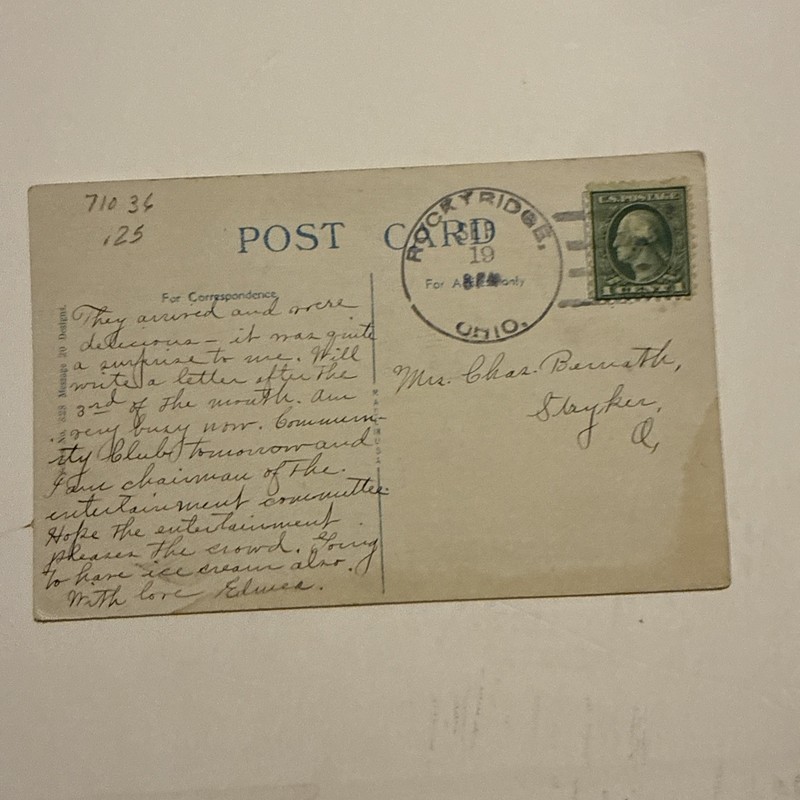 710 36
.25
POST CARD
ROCKYRIDGE,
SEP
19
OHIO.
U.S. POSTAGE
1 CENT 1
For Correspondence
For Address only
No. 328 Message 20 Designs.
They arrived and were
delicious – it was quite
a surprise to me. Will
write a letter after the
3rd of the month. Am
very busy now. Commun-
ity Club tomorrow and
I am chairman of the
entertainment committee.
Hope the entertainment
pleases the crowd. Going
to have ice cream also.
With love
Mrs. Chas. Bernath,
Stryker,
O,